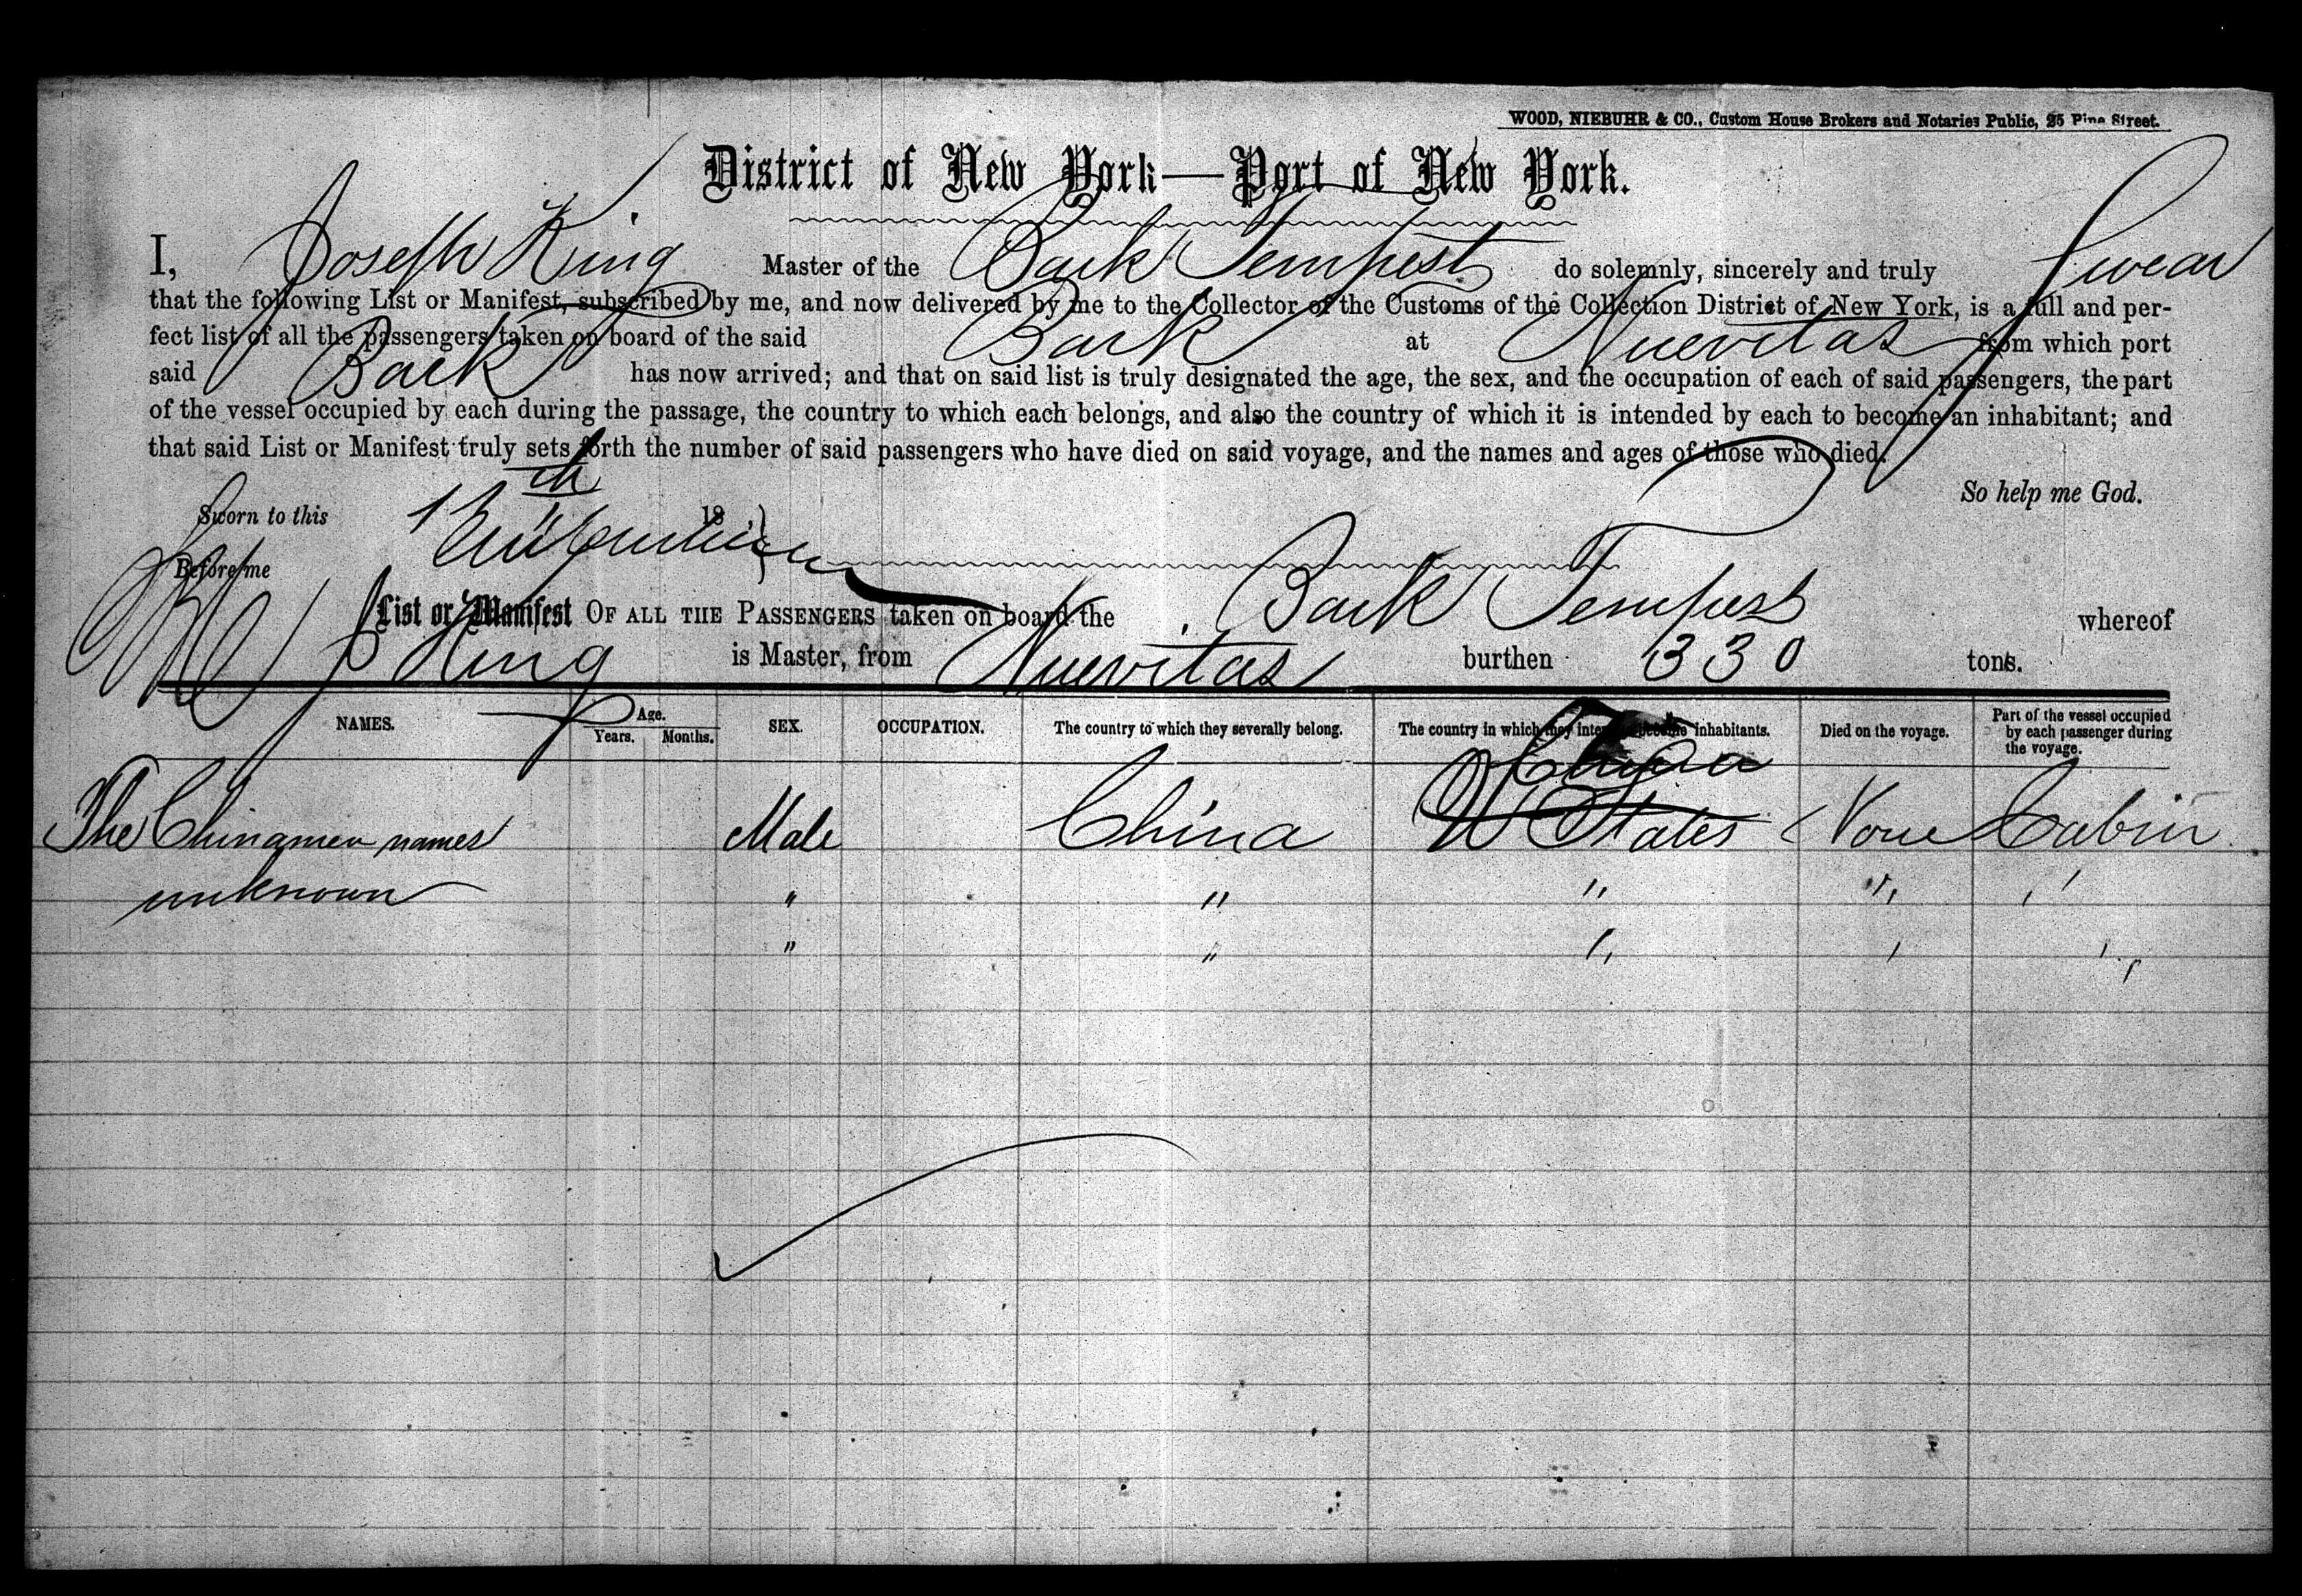 WOOD, NIEBUHR & CO., Custom House Brokers and Notaries Public, 25 Pine Street.
District of New York—Port of New York.
I, Joseph King Master of the Bark Tempest do solemnly, sincerely and truly Swear
that the following List or Manifest, subscribed by me, and now delivered by me to the Collector of the Customs of the Collection District of New York, is a full and per-
fect list of all the passengers taken on board of the said Bark at Nuevitas from which port
said Bark has now arrived; and that on said list is truly designated the age, the sex, and the occupation of each of said passengers, the part
of the vessel occupied by each during the passage, the country to which each belongs, and also the country of which it is intended by each to become an inhabitant; and
that said List or Manifest truly sets forth the number of said passengers who have died on said voyage, and the names and ages of those who died.
So help me God.
Sworn to this th 18
Before me
List or Manifest OF ALL THE PASSENGERS taken on board the Bark Tempest whereof
J King is Master, from Nuevitas burthen 330 tons.
NAMES. Age. Years. Months. SEX. OCCUPATION. The country to which they severally belong. The country in which they intend to become inhabitants. Died on the voyage. Part of the vessel occupied by each passenger during the voyage.
China
The Chinamen names Male China U States None Cabin
unknown " " " " "
" " " " "